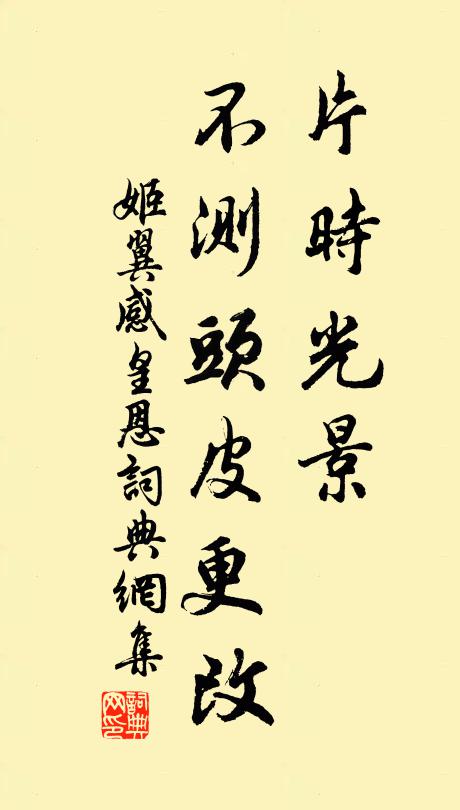 片時光景
不測頭皮更改
姬翼感皇恩詞典網集
詞典
网印